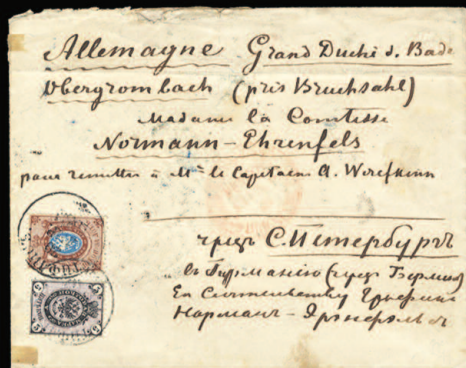 Allemagne Grand Duché d. Bade
Obergrombach (près Bruchsahl)
Madame la Comtesse
Normann-Ehrenfels
pour remettre à Mr le Capitaine A. Werefkinn
чрезъ С.Петербургъ
въ Германію (чрезъ Берлин)
Ея Сіятельству Графинѣ
Норман-Эренфельсъ
ТИФЛИС